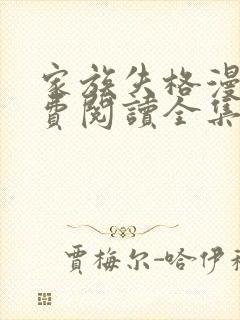 家族失格漫
費閱讀全集
賈梅尔-哈伊